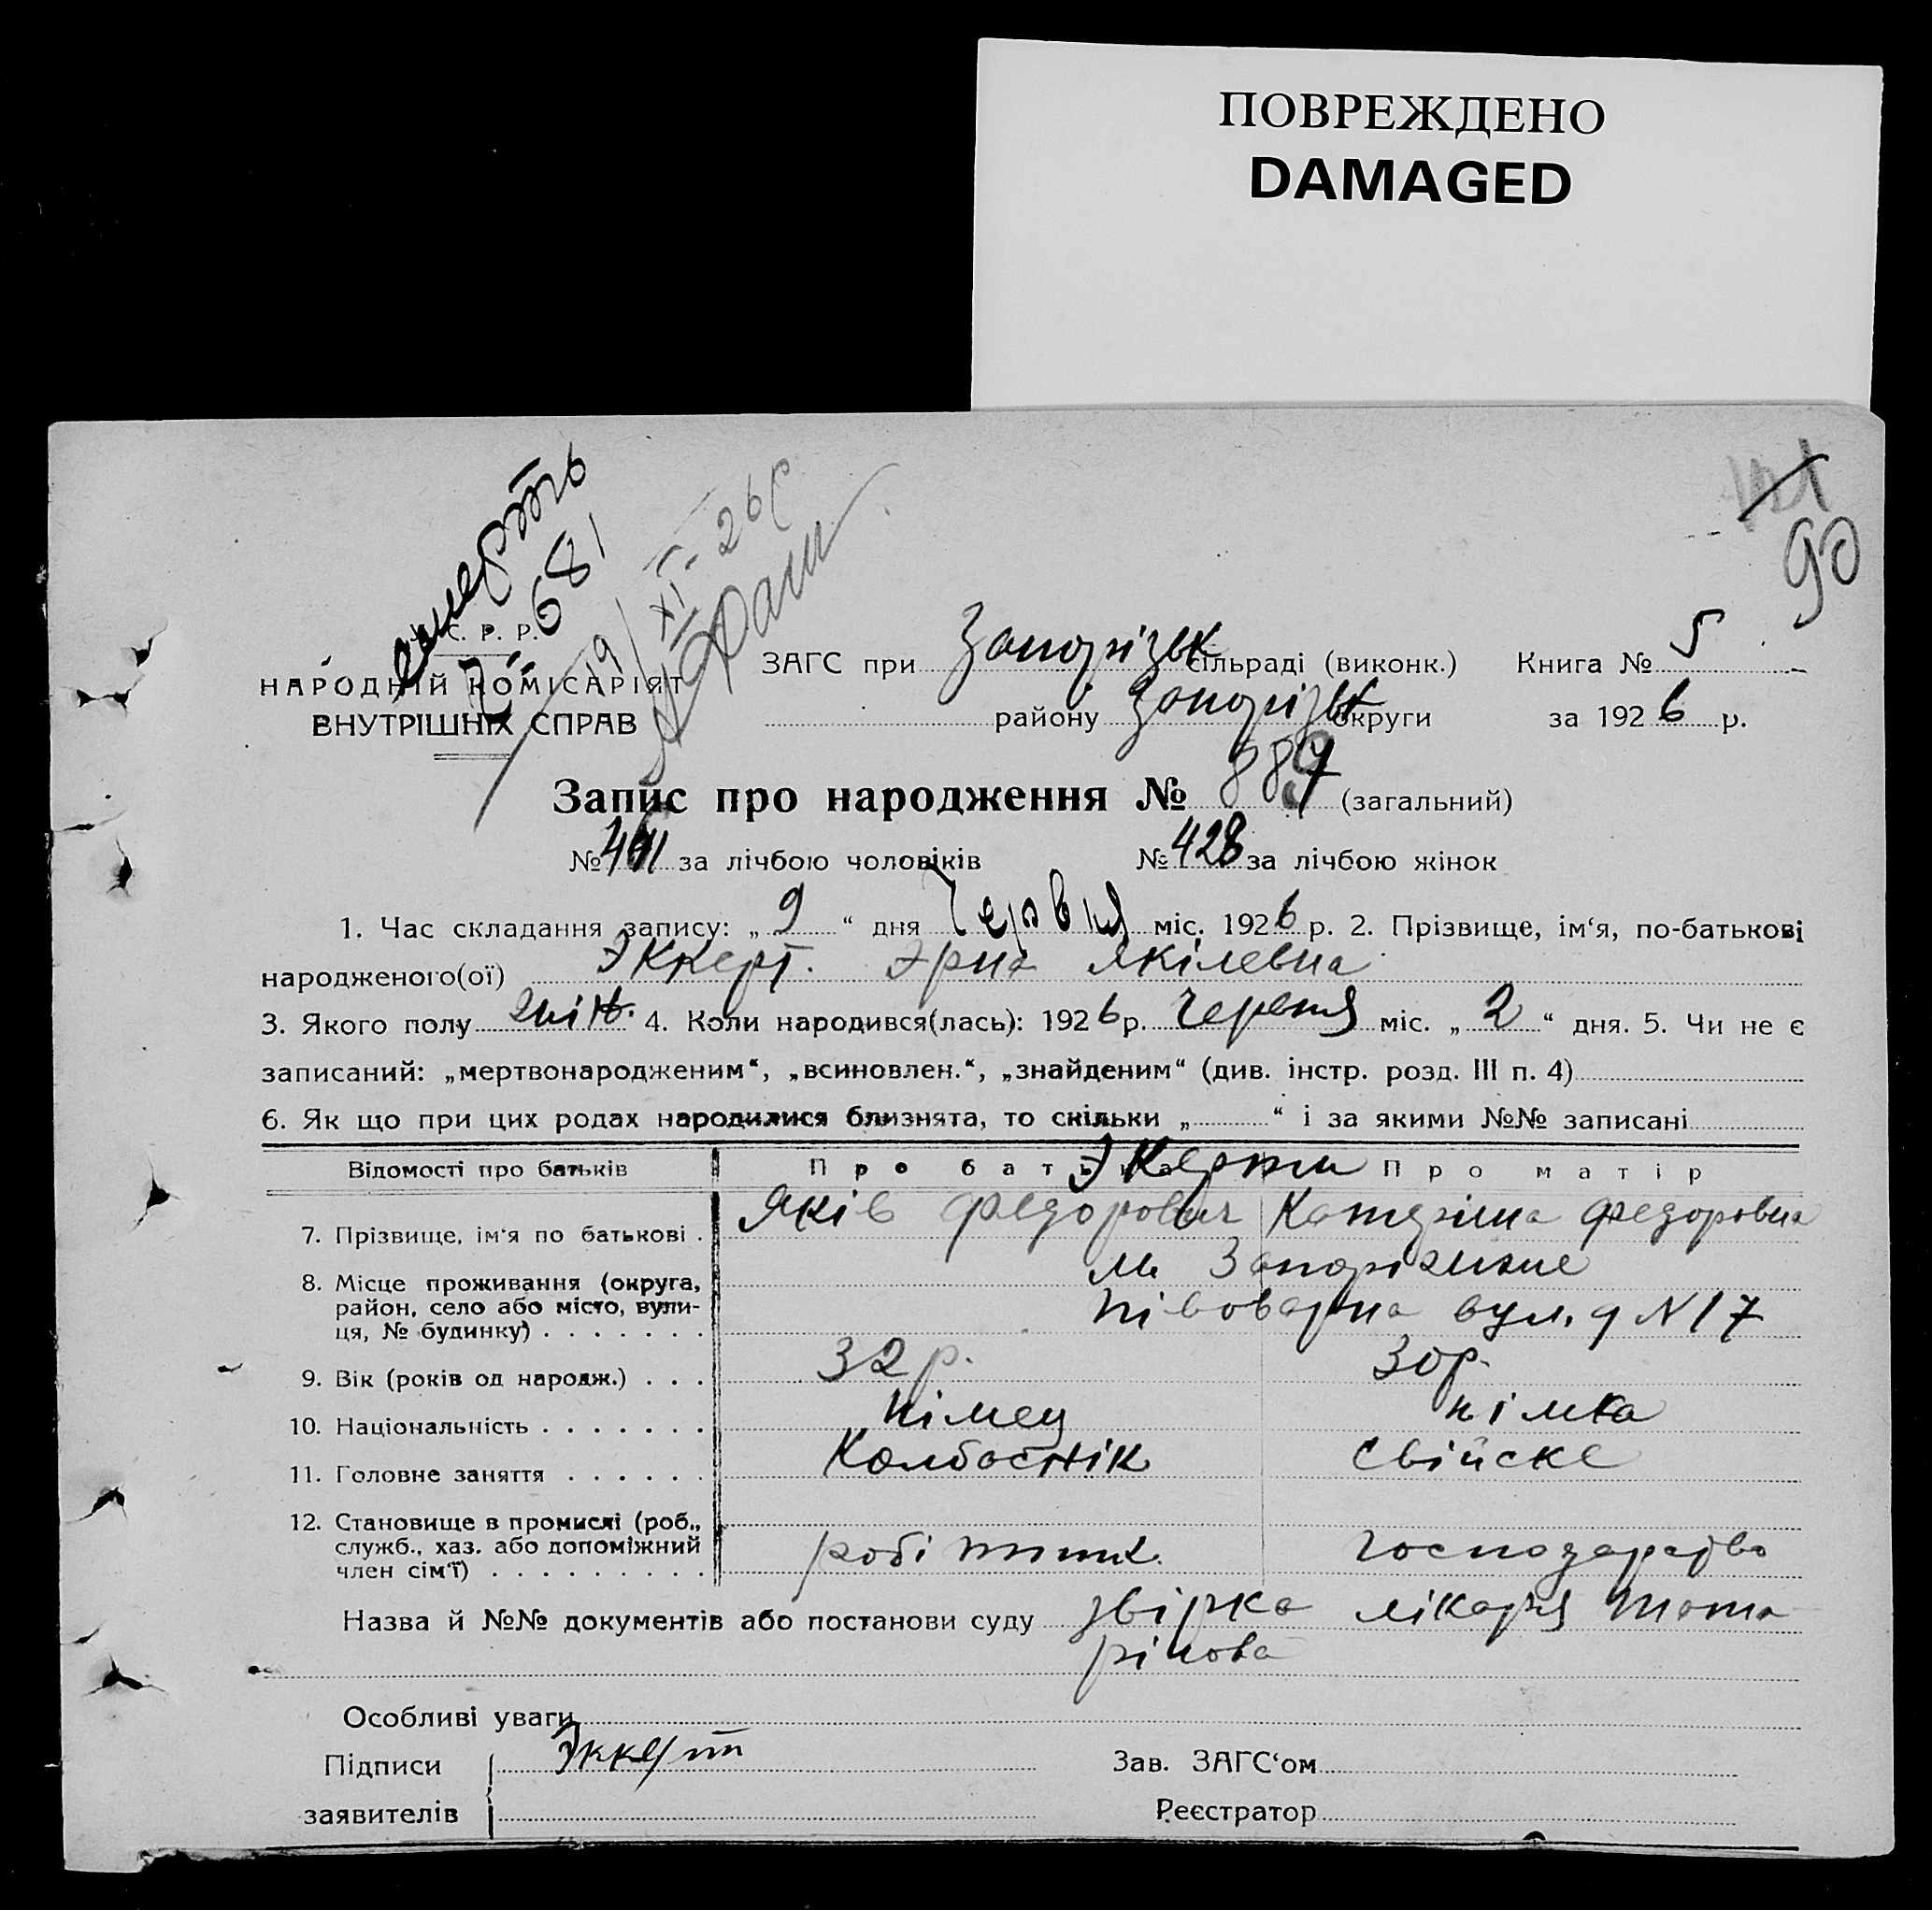 ПОВРЕЖДЕНО
DAMAGED
90
смерть
681
19/XI-26р
С. Р. Р.
НАРОДНІЙ КОМІСАРІЯТ
ВНУТРІШНІХ СПРАВ
ЗАГС при Запорізьк сільраді (виконк.) Книга № 5
району Запорізьк округи за 1926 р.
Запис про народження № 889 (загальний)
№ 461 за лічбою чоловіків № 428 за лічбою жінок
1. Час складання запису: „ 9 “ дня Червня міс. 1926 р. 2. Прізвище, ім‘я, по-батькові
народженого(ої) Эккерт. Эрна Яківевна
3. Якого полу жін. 4. Коли народився(лась): 1926 р. Червня міс. „ 2 “ дня. 5. Чи не є
записаний: „мертвонародженим“, „всиновлен.“, „знайденим“ (див. інстр. розд. III п. 4)
6. Як що при цих родах народилися близнята, то скільки „ “ і за якими №№ записані
Відомості про батьків Про батька Экерти Про матір
7. Прізвище, ім‘я по батькові . Яків Федорович Катеріна Федоровна
8. Місце проживання (округа, м. Запоріжжє
район, село або місто, вули- Півоварна вул. д N 17
ця, № будинку) . . . . . . .
9. Вік (років од народж.) . . . 32 р. 30 р.
10. Національність . . . . . . . німец німка
11. Головне заняття . . . . . . Колбаснік свійске
12. Становище в промислі (роб.,
служб., хаз. або допоміжний робітник господарство
член сім‘ї) . . . . . . . . .
Назва й №№ документів або постанови суду звірка лікаря Тата
рінова
Особливі уваги
Підписи Эккерт Зав. ЗАГС‘ом
заявителів Реєстратор